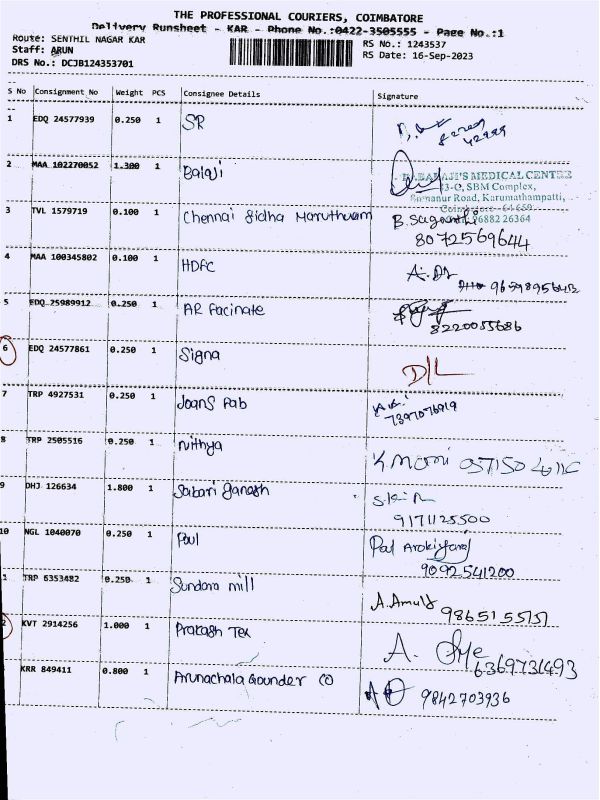 THE PROFESSIONAL COURIERS, COIMBATORE
Delivery Runsheet - KAR - Phone No.:0422-3505555 - Page No.:1
Route: SENTHIL NAGAR KAR
RS No.: 1243537
Staff: ARUN
RS Date: 16-Sep-2023
DRS No.: DCJB124353701
S No Consignment No Weight PCS Consignee Details Signature
1 EDQ 24577939 0.250 1 SR
2 MAA 102270052 1.300 1 Balaji
BALAJI'S MEDICAL CENTRE
3-C, SBM Complex,
Somanur Road, Karumathampatti,
Coimbatore - 641 659
96882 26364
3 TVL 1579719 0.100 1 Chennai Sidha Maruthuvam B.Suganthi
8072569644
4 MAA 100345802 0.100 1 HDFC
5 EDQ 25989912 0.250 1 AR Facinate
8220055686
6 EDQ 24577861 0.250 1 Signa D/L
7 TRP 4927531 0.250 1 Joans Fab
7397076919
8 TRP 2505516 0.250 1 Nithya
9 DHJ 126634 1.800 1 Sabari Ganesh
9171125500
10 NGL 1040070 0.250 1 Paul Paul Arokiyaraj
9092541200
1 TRP 6353482 0.250 1 Sundara mill A.Amul
2 KVT 2914256 1.000 1 Prakash Tex A.
6369731493
KRR 849411 0.800 1 Arunachala Gounder CO 9842703936